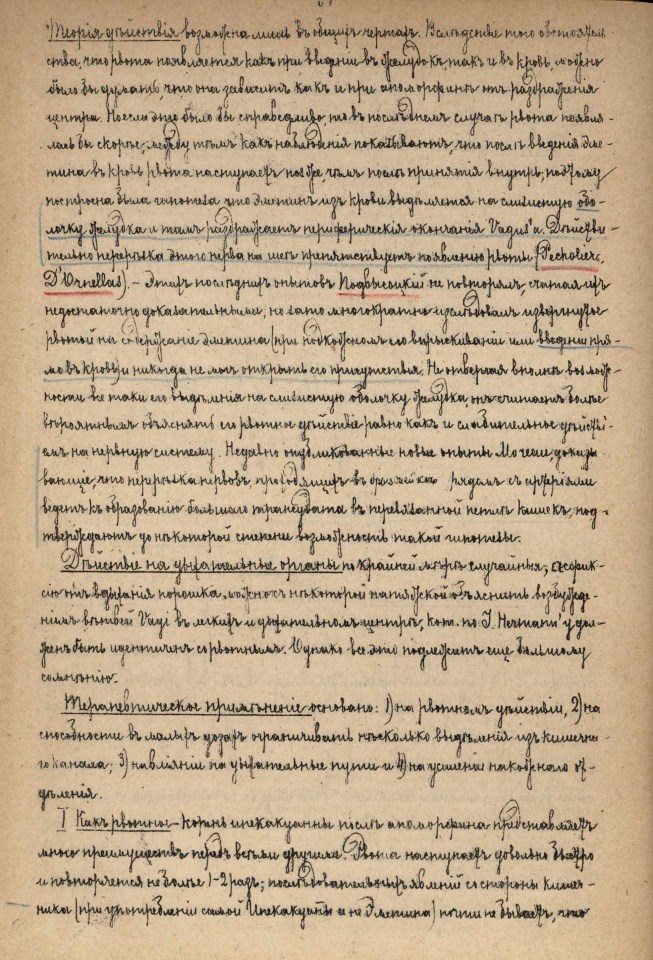 Теорія дѣйствія возможна лишь въ общихъ чертахъ. Вслѣдствіе того обстоятель-
ства, что рвота появляется какъ при введеніи въ желудокъ, такъ и въ кровь, можно
было бы думать, что она зависитъ какъ и при апоморфинѣ отъ раздраженія
центра. Но если это было бы справедливо, то въ послѣднемъ случаѣ рвота появля-
лась бы скорѣе, между тѣмъ какъ наблюденія показываютъ, что послѣ введенія эме-
тина въ кровь рвота наступаетъ позже, чѣмъ послѣ принятія внутрь; поэтому
построена была гипотеза что эметинъ изъ крови выдѣляется на слизистую обо-
лочку желудка и тамъ раздражаетъ периферическія окончанія Vagus'a. Дѣйстви-
тельно перерѣзка этого нерва на шеѣ препятствуетъ появленію рвоты (Pecholier,
D'Ornellas). – Этихъ послѣднихъ опытовъ Подвысоцкій не повторялъ, считая ихъ
недостаточно доказательными; но зато многократно изслѣдовалъ извергнутое
рвотой на содержаніе эметина (при подкожномъ его впрыскиваніи или введеніи пря-
мо въ кровь) и никогда не могъ открыть его присутствія. Не отвергая вполнѣ возмож-
ности все таки его выдѣленія на слизистую оболочку желудка, онъ считаетъ болѣе
вѣроятнымъ объяснять его рвотное дѣйствіе равно какъ и слабительное дѣйстві-
емъ на нервную систему. Недавно опубликованные новые опыты Моreau, доказы-
вающіе, что перерѣзка нервовъ, проходящихъ въ брыжейкѣ рядомъ съ артеріями
ведетъ къ образованію большаго транссудата въ перевязанной петлѣ кишекъ, под-
тверждаютъ до нѣкоторой степени возможность такой гипотезы.
Дѣйствіе на дыхательные органы по крайней мѣрѣ случайныя, асфик-
сію отъ вдыханія порошка, можно съ нѣкоторой натяжкой объяснить возбужде-
ніемъ вѣтвей Vagi въ легкихъ и дыхательномъ центрѣ, кот. по J. Hermann'у дол-
женъ быть идентиченъ со рвотнымъ. Однако все это подлежитъ еще большому
сомнѣнію.
Терапевтическое примѣненіе основано: 1) на рвотномъ дѣйствіи, 2) на
способности въ малыхъ дозахъ ограничивать нѣсколько выдѣленія изъ кишечна-
го канала; 3) на вліяніи на дыхательные пути и 4) на усиленіи накожнаго от-
дѣленія.
I Какъ рвотное – корень ипекакуанны послѣ апоморфина представляетъ
много преимуществъ передъ всѣми другими. Рвота наступаетъ довольно быстро
и повторяется не болѣе 1-2 разъ; послѣдовательныхъ явленій со стороны кишеч-
ника (при употребленіи самой Ипекакуаны а не Эметина) почти не бываетъ, что